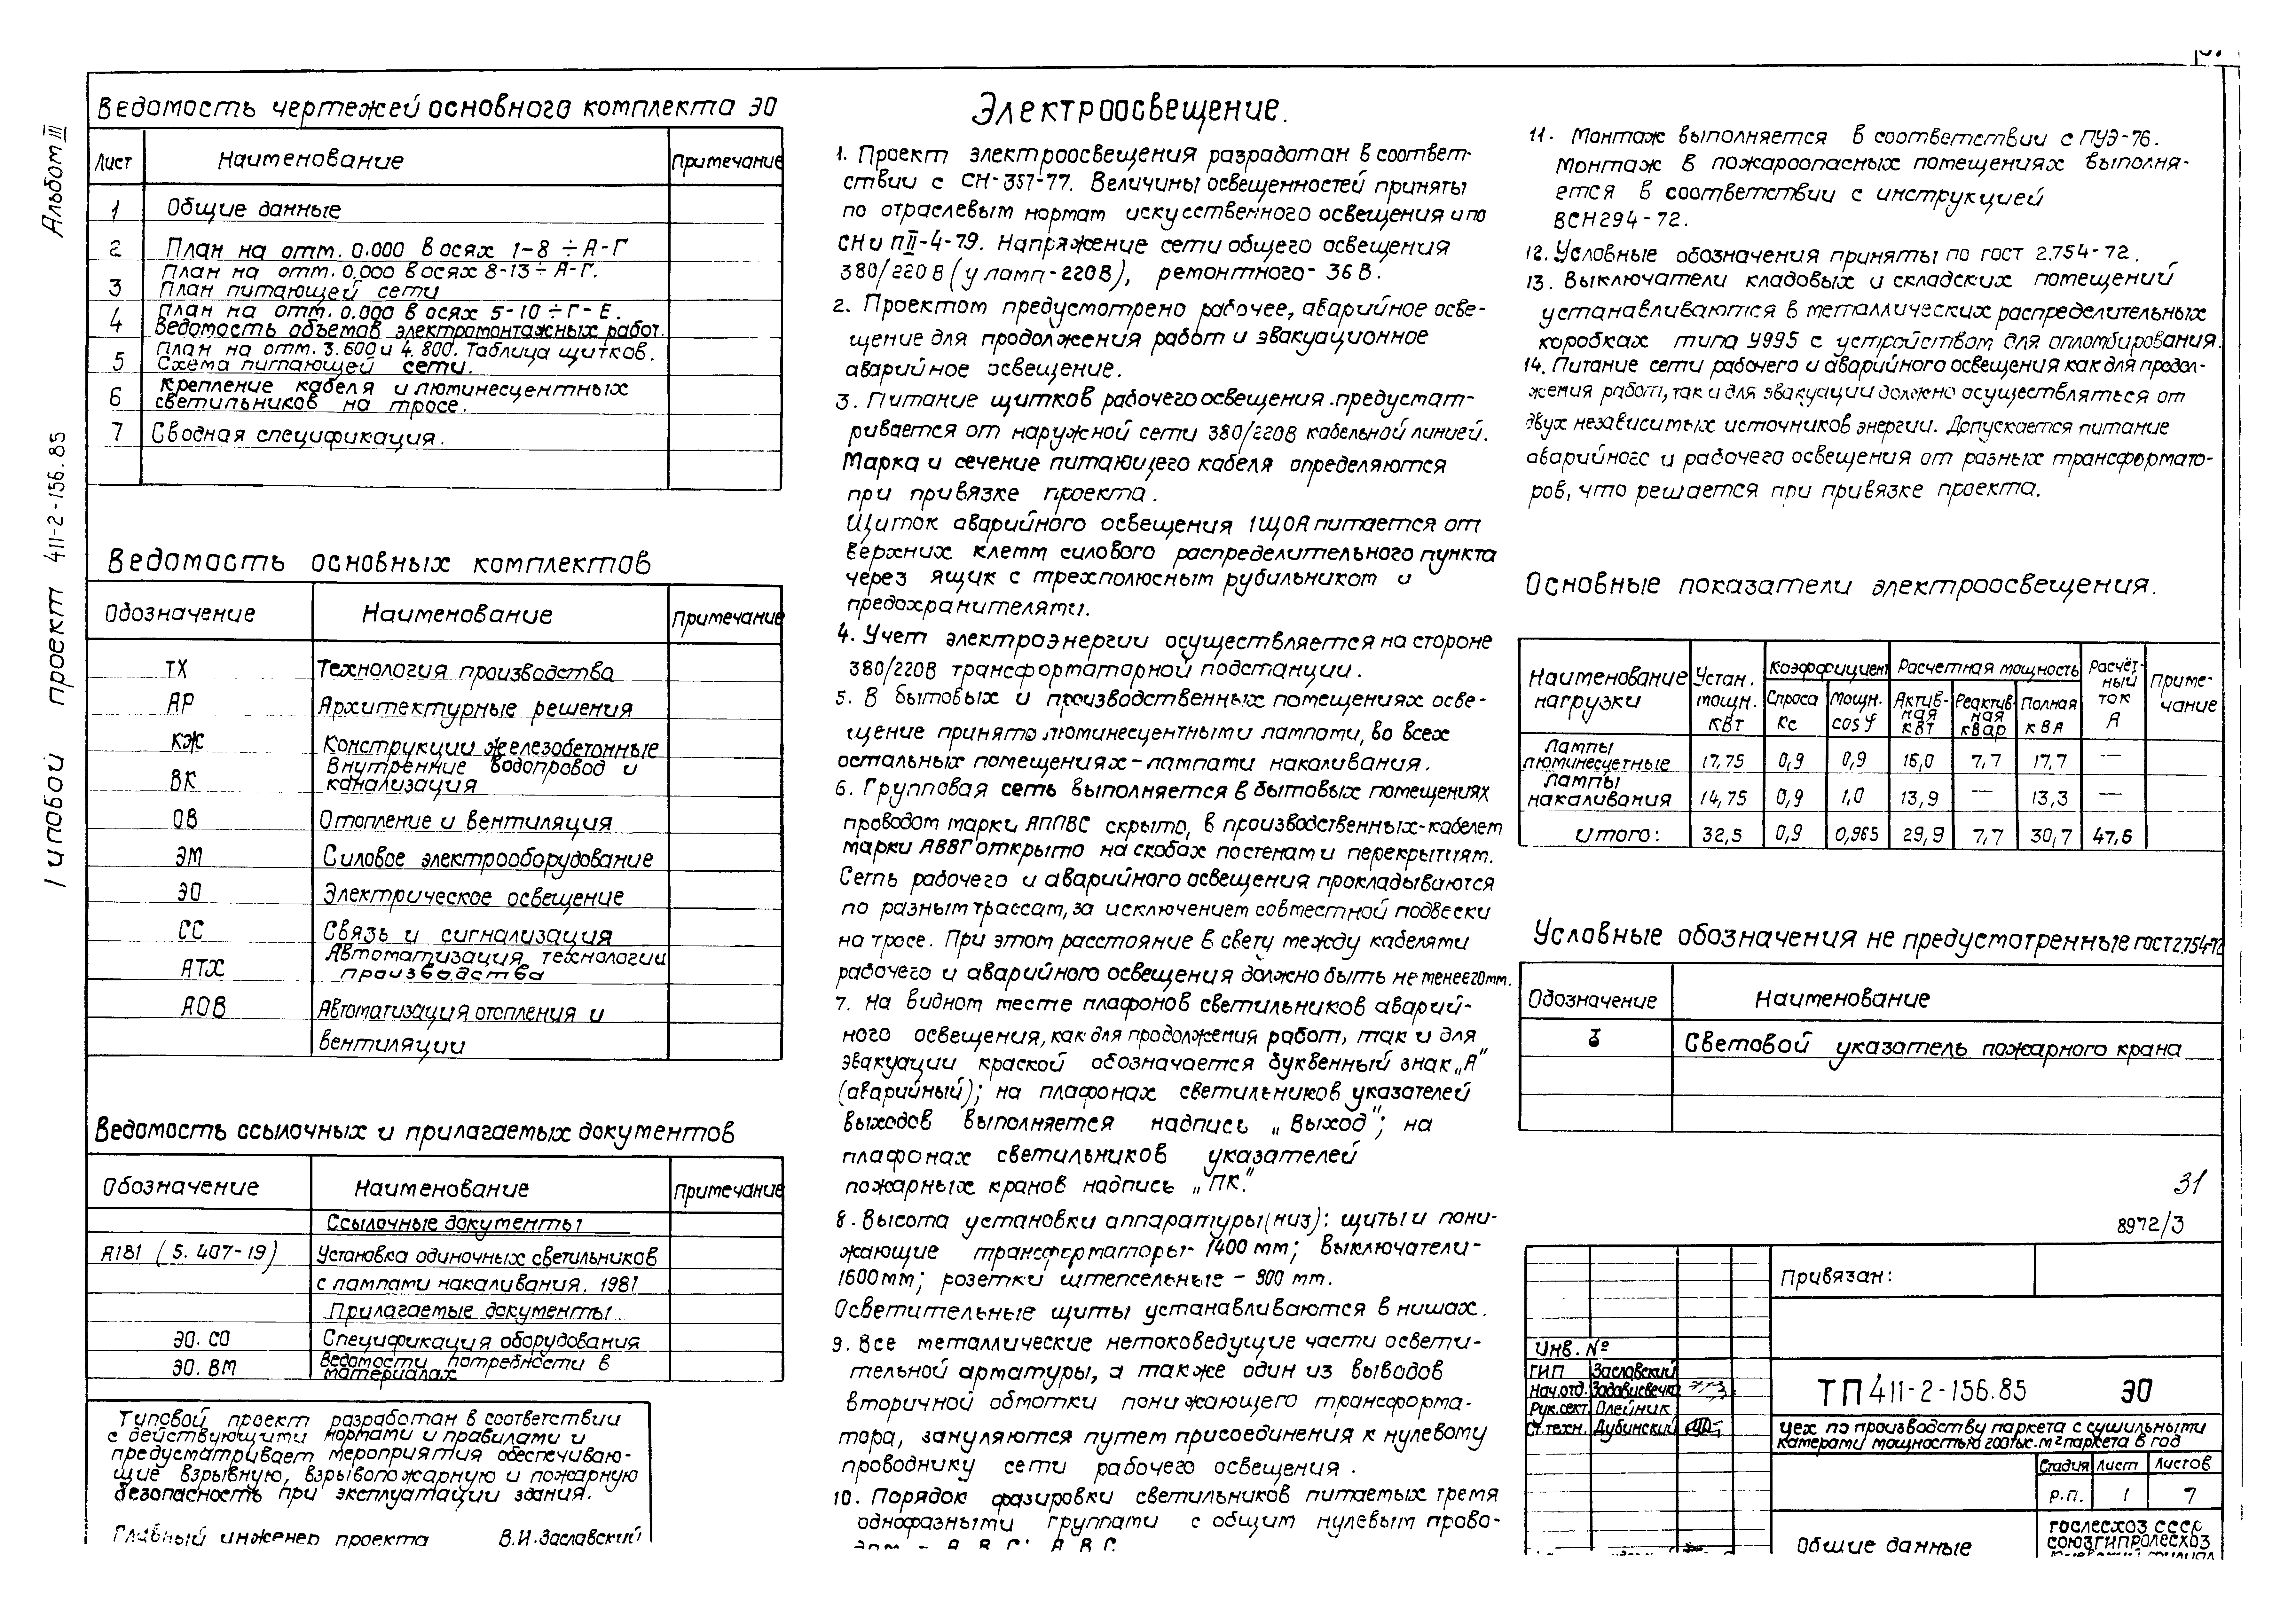 Альбом III
Типовой проект 411-2-156.85
Ведомость чертежей основного комплекта ЭО
Лист Наименование Примечание
1 Общие данные
2 План на отм. 0.000 в осях 1-8 ÷ А-Г
План на отм. 0.000 в осях 8-13 ÷ А-Г.
3 План питающей сети
План на отм. 0.000 в осях 5-10 ÷ Г-Е.
4 Ведомость объемов электромонтажных работ.
План на отм. 3.600 и 4.800. Таблица щитков.
5 Схема питающей сети.
6 Крепление кабеля и люминесцентных
светильников на тросе.
7 Сводная спецификация.
Ведомость основных комплектов
Обозначение Наименование Примечание
ТХ Технология производства
АР Архитектурные решения
КЖ Конструкции железобетонные
Внутренние водопровод и
ВК канализация
ОВ Отопление и вентиляция
ЭМ Силовое электрооборудование
ЭО Электрическое освещение
СС Связь и сигнализация
Автоматизация технологии
АТХ производства
АОВ Автоматизация отопления и
вентиляции
Ведомость ссылочных и прилагаемых документов
Обозначение Наименование Примечание
Ссылочные документы
А181 (5.407-19) Установка одиночных светильников
с лампами накаливания. 1981
Прилагаемые документы
ЭО.СО Спецификация оборудования
ЭО.ВМ Ведомости потребности в
материалах
Типовой проект разработан в соответствии
с действующими нормами и правилами и
предусматривает мероприятия обеспечиваю-
щие взрывную, взрывопожарную и пожарную
безопасность при эксплуатации здания.
Главный инженер проекта В.И.Заславский
Электроосвещение.
1. Проект электроосвещения разработан в соответ-
ствии с СН-357-77. Величины освещенностей приняты
по отраслевым нормам искусственного освещения и по
СН и П II-4-79. Напряжение сети общего освещения
380/220 В (у ламп-220В), ремонтного- 36 В.
2. Проектом предусмотрено рабочее, аварийное осве-
щение для продолжения работ и эвакуационное
аварийное освещение.
3. Питание щитков рабочего освещения предусмат-
ривается от наружной сети 380/220В кабельной линией.
Марка и сечение питающего кабеля определяются
при привязке проекта.
Щиток аварийного освещения 1ЩОА питается от
верхних клемм силового распределительного пункта
через ящик с трехполюсным рубильником и
предохранителями.
4. Учет электроэнергии осуществляется на стороне
380/220В трансформаторной подстанции.
5. В бытовых и производственных помещениях осве-
щение принято люминесцентными лампами, во всех
остальных помещениях-лампами накаливания.
6. Групповая сеть выполняется в бытовых помещениях
проводом марки АППВС скрыто, в производственных-кабелем
марки АВВГ открыто на скобах по стенам и перекрытиям.
Сеть рабочего и аварийного освещения прокладываются
по разным трассам, за исключением совместной подвески
на тросе. При этом расстояние в свету между кабелями
рабочего и аварийного освещения должно быть не менее 20мм.
7. На видном месте плафонов светильников аварий-
ного освещения, как для продолжения работ, так и для
эвакуации краской обозначается буквенный знак „А"
(аварийный); на плафонах светильников указателей
выходов выполняется надпись „Выход"; на
плафонах светильников указателей
пожарных кранов надпись „ПК."
8. Высота установки аппаратуры (низ): щиты и пони-
жающие трансформаторы- 1400 мм; выключатели-
1600мм; розетки штепсельные - 800 мм.
Осветительные щиты устанавливаются в нишах.
9. Все металлические нетоковедущие части освети-
тельной арматуры, а также один из выводов
вторичной обмотки понижающего трансформа-
тора, зануляются путем присоединения к нулевому
проводнику сети рабочего освещения.
10. Порядок фазировки светильников питаемых тремя
однофазными группами с общим нулевым прово-
дом - А, В, С; А, В, С.
11. Монтаж выполняется в соответствии с ПУЭ-76.
Монтаж в пожароопасных помещениях выполня-
ется в соответствии с инструкцией
ВСН294-72.
12. Условные обозначения приняты по гост 2.754-72.
13. Выключатели кладовых и складских помещений
устанавливаются в металлических распределительных
коробках типа У995 с устройством для опломбирования.
14. Питание сети рабочего и аварийного освещения как для продол-
жения работ, так и для эвакуации должно осуществляться от
двух независимых источников энергии. Допускается питание
аварийного и рабочего освещения от разных трансформато-
ров, что решается при привязке проекта.
Основные показатели электроосвещения.
Наименование нагрузки Устан. мощн. кВт Коэффициент Расчетная мощность Расчётный ток А Примечание
Спроса Кс Мощн. cos φ Активная кВт Реактивная квар Полная кВА
Лампы
люминесцетные 17,75 0,9 0,9 16,0 7,7 17,7 —
Лампы
накаливания 14,75 0,9 1,0 13,9 — 13,3 —
Итого: 32,5 0,9 0,965 29,9 7,7 30,7 47,6
Условные обозначения не предусмотренные гост 2.754-72
Обозначение Наименование
Световой указатель пожарного крана
31
8972/3
Привязан:
Инв. №
ГИП Заславский
Нач.отд. Задависвечка
Рук.сект. Олейник
Ст.техн. Дубинский
ТП 411-2-156.85 ЭО
Цех по производству паркета с сушильными
камерами мощностью 200тыс.м² паркета в год
Стадия Лист Листов
Р.П. 1 7
Общие данные
Гослесхоз СССР
Союзгипролесхоз